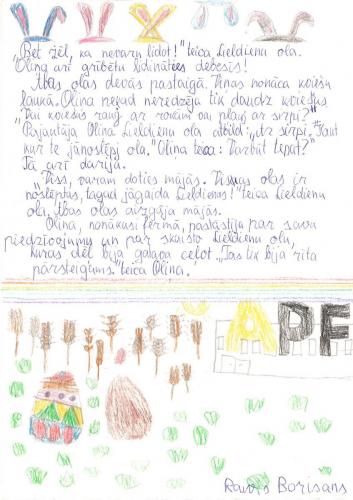 "Bet žēl, ka nevaru lidot!" teica Lieldienu ola.
"Oliņa arī gribētu lidināties debesīs!
Abas olas devās pastaigā. Viņas nonāca kviešu
laukā. Oliņa nekad neredzēja tik daudz kviešus.
"Vai kviešus rauj ar rokām vai pļauj ar sirpi?"
Pajautāja Oliņa. Lieldienu ola atbild: "Ar sirpi. "Kaut
kur te jānoslēpj ola." Oliņa teica: "Varbūt tepat?"
Tā arī darīja.
"Viss, varam doties mājās. Visas olas ir
noslēptas, tagad jāgaida Lieldienas!" teica Lieldienu
ola. Abas olas aizgāja mājās.
Oliņa, nonākusi fermā, pastāstīja par savu
piedzīvojumu un par skaisto Lieldienu olu,
kuras dēļ bija galapa ceļot. "Tas tik bija rīta
pārsteigums." teica Oliņa.
A PF
Borisans